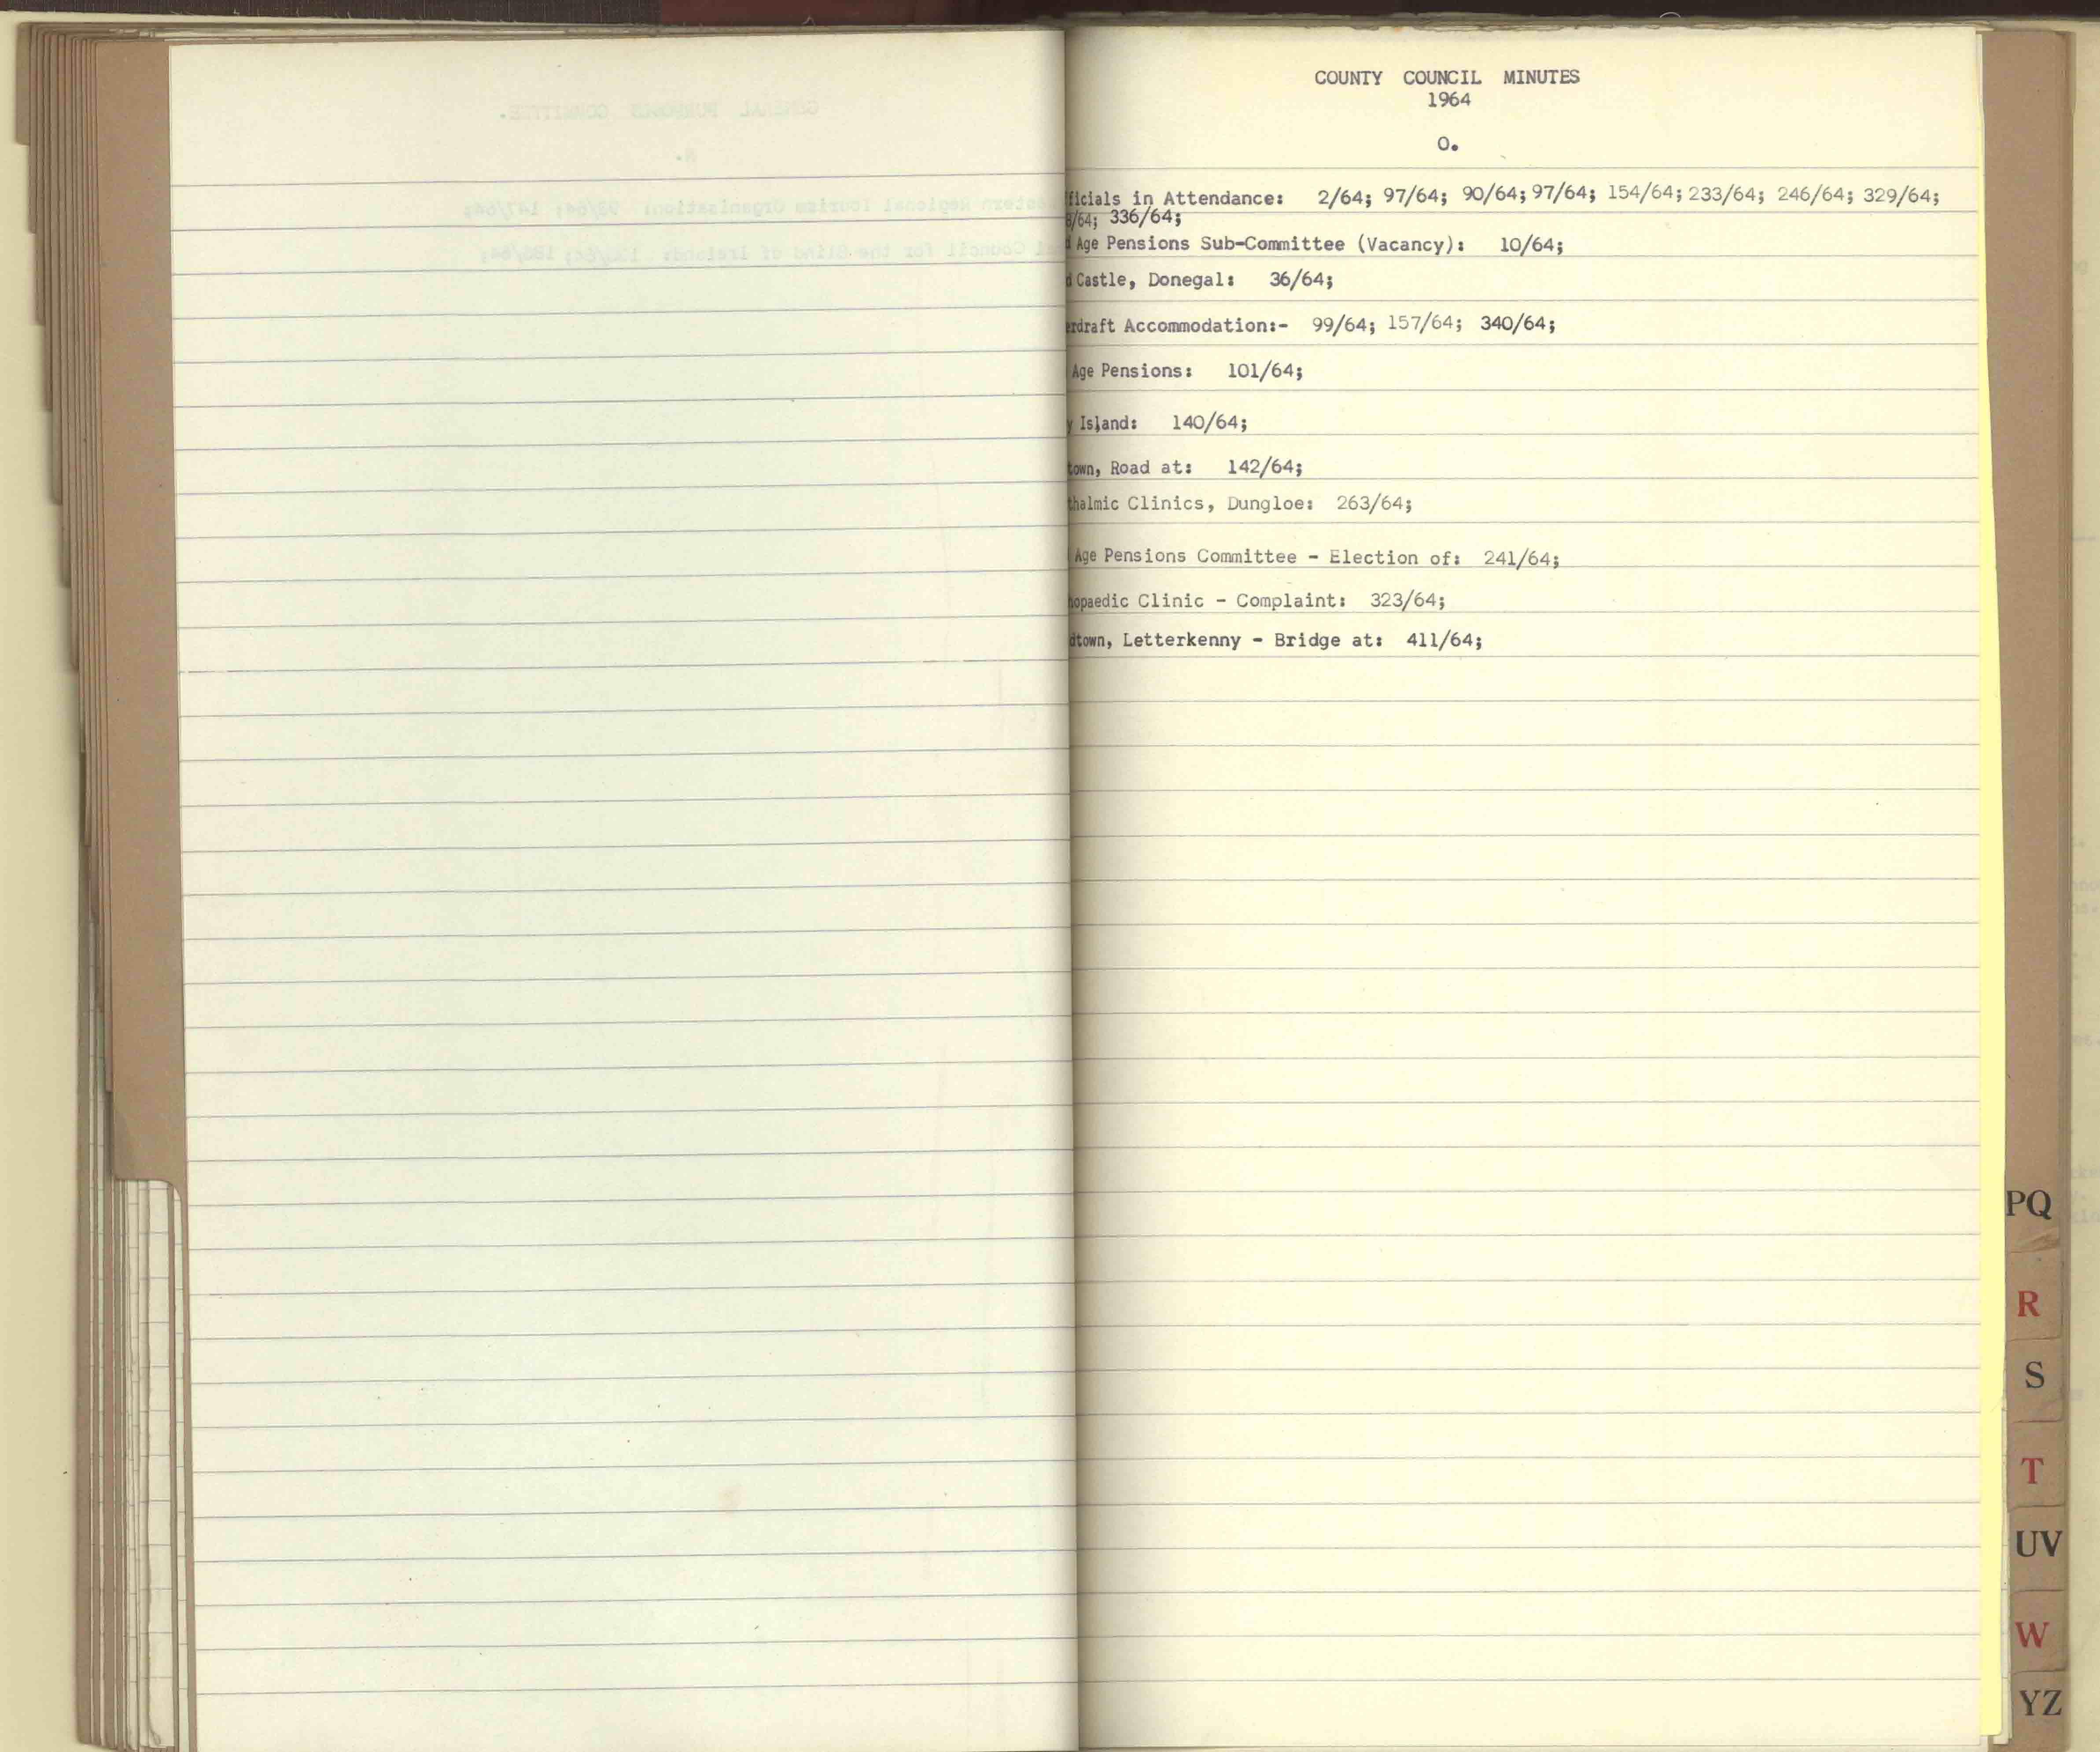 COUNTY COUNCIL MINUTES
1964
O.
ficials in Attendance: 2/64; 97/64; 90/64; 97/64; 154/64; 233/64; 246/64; 329/64;
/64; 336/64;
d Age Pensions Sub-Committee (Vacancy): 10/64;
d Castle, Donegal: 36/64;
erdraft Accommodation:- 99/64; 157/64; 340/64;
Age Pensions: 101/64;
y Island: 140/64;
town, Road at: 142/64;
thalmic Clinics, Dungloe: 263/64;
Age Pensions Committee - Election of: 241/64;
hopaedic Clinic - Complaint: 323/64;
dtown, Letterkenny - Bridge at: 411/64;
PQ
R
S
T
UV
W
YZ